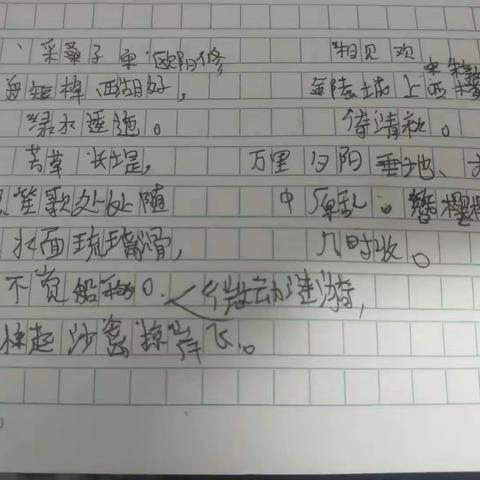 采桑子 宋 欧阳修
舟短棹西湖好,
绿水逶迤。
芳草长堤,
笙歌处处随
水面琉璃滑,
不觉船移。微动涟漪,
惊起沙禽掠岸飞。
相见欢
宋 朱
金陵城上西楼
倚清秋。
万里夕阳垂地、大
中原乱。簪缨
几时收。